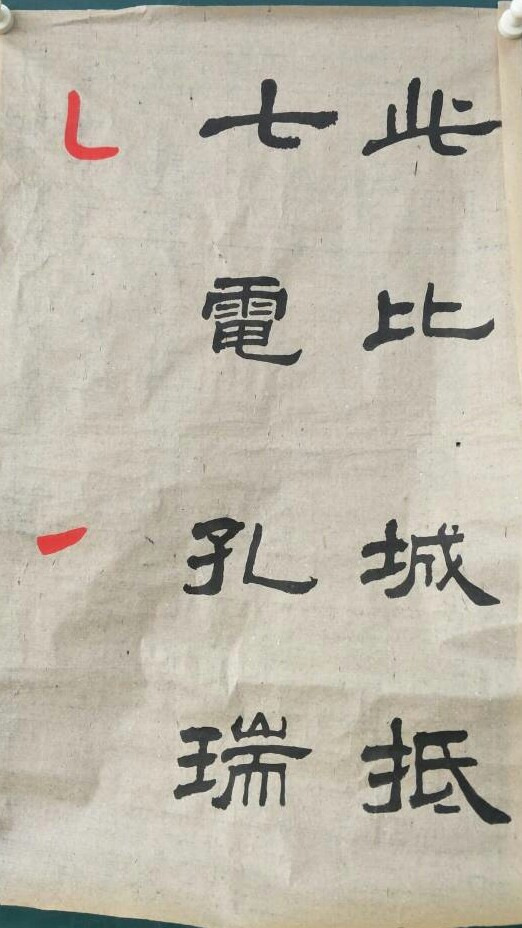 此比城抵
七電孔瑞